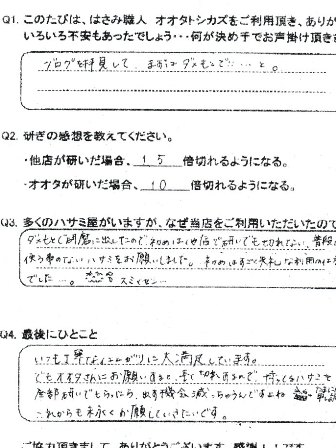 Q1. このたびは、はさみ職人 オオタトシカズをご利用頂き、ありが
いろいろ不安もあったでしょう・・・何が決め手でお声掛け頂き
ブログを拝見して、まずはダメもとで・・・と。
Q2. 研ぎの感想を教えてください。
・他店が研いだ場合、1.5 倍切れるようになる。
・オオタが研いだ場合、10 倍切れるようになる。
Q3. 多くのハサミ屋がいますが、なぜ当店をご利用いただいたので
ダメもとで研磨に出したので初めは他店で研いでも切れない、普段
使う事のないハサミをお願いしました。初めはすごく失礼な利用の
でした…。 スミマセン…
Q4. 最後にひとこと
いつも丁寧な仕上がりに大満足しています。
でもオオタさんにお願いすると、長く切れするので、持ってるハサミを
全部研いでもらったら、出す機会減っちゃうんですよね
これからも末永くお願していきたいです。
ご協力頂きまして、ありがとうございます。感謝!!です。